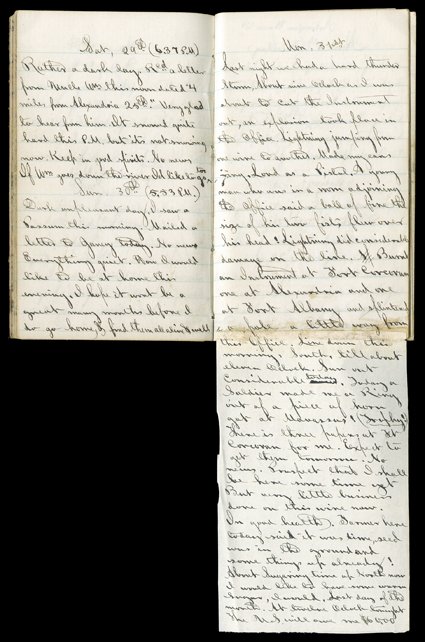 Sat, 29th (6.37 P.M)
Rather a dark day. Rec'd a letter
from Uncle Wm this morn dated "4
miles from Alexandria 28th." Very glad
to hear from him. It snowed quite
hard this P.M. but its not snowing
now. Keep in good spirits. No news
If Wm goes down the river I'd like to go too
Sun 30th (5.33 P.M.)
Dark unpleasant day. I saw a
Possum this morning. Mailed a
letter to today. No news
Everything quiet. How I would
like to be at home this
evening. I hope it wont be a
great many months before I
do go home, & find them all alive & well
Mon. 31st
Last night we had a hard thunder
storm. About nine Oclock as I was
about to cut the Instrument
out, an explosion took place in
the Office. Lightning jumping from
one wire to another. Made my ears
ring. Loud as a Pistol. A young
man who was in a room adjoining
the Office said a ball of fire the
size of his two fists flew over
his head! Lightning did considerable
damage on the Line. It Burnt
an Instrument at Fort Corcoran
one at Alexandria and one
at Fort Albany and splintered
a pole a little way from
this Office. Line down this
morning. South, till about
eleven Oclock. I'm out
considerable today. Today a
Soldier made me a Ring
out of a piece of horn
got at Manassas! (Trophy!)
There is three papers at Ft
Corcoran for me. Expect to
get them tomorrow. No
news. Prospect that I shall
be here some time yet
But very little business
done on this wire now.
In good health. Farmer here
today said it was time, seed
was in the ground and
some things up already!
About sugaring time up North now
I would like to have some warm
sugar, I would. Last day of the
month. At twelve Oclock tonight
The U.S. will owe me